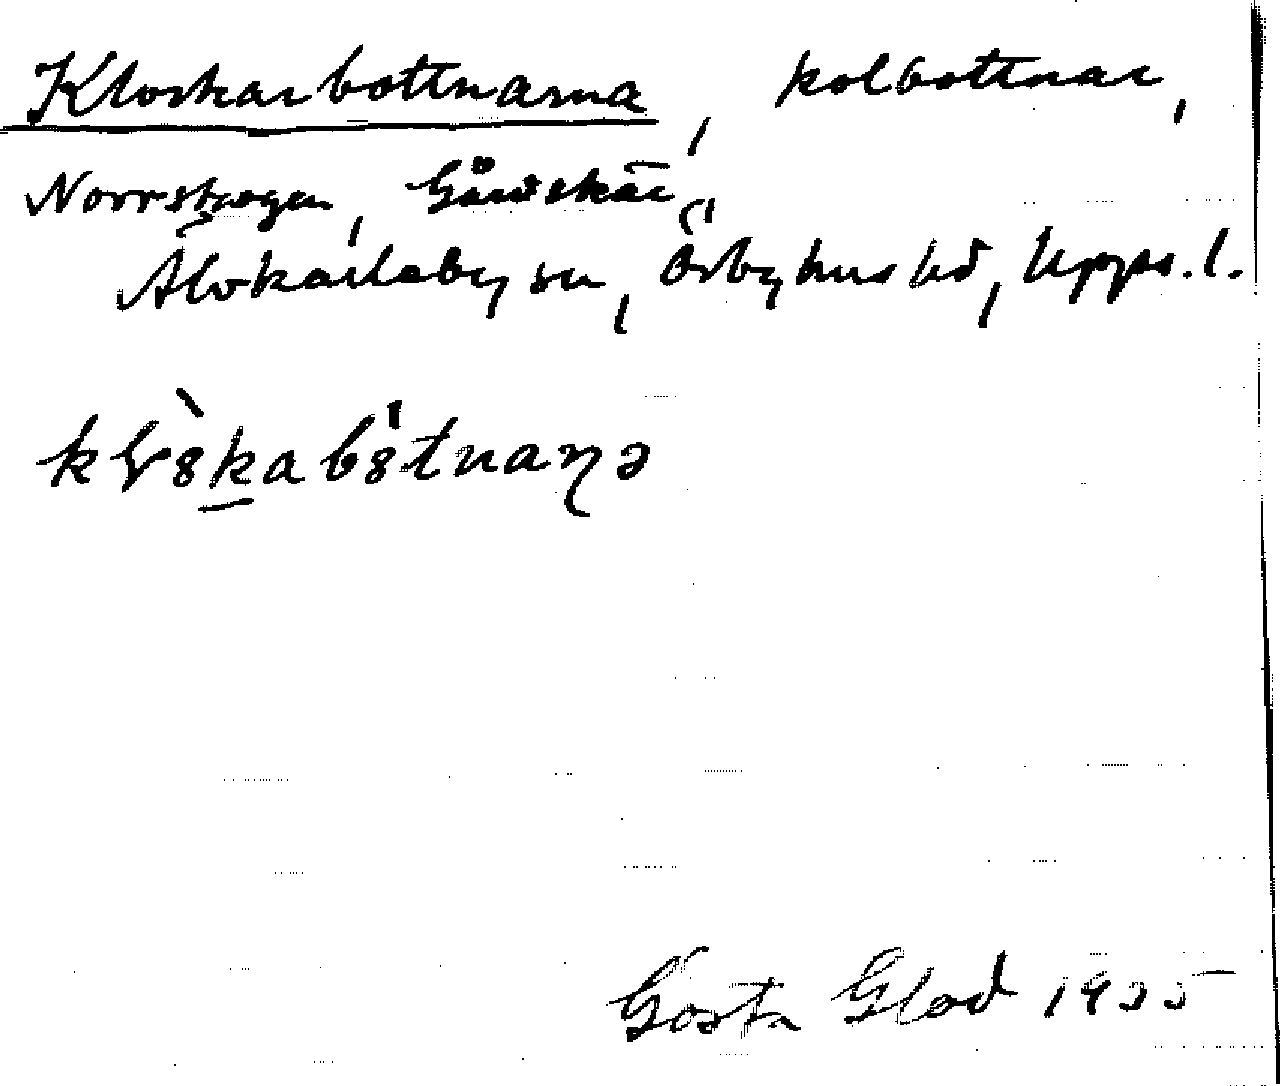 Klockarbottnarna, kolbottnar,
Norrskogen, Gårdskär,
Älvkarleby sn, Örbyhus hd, Upps. l.
Gösta Glad 1935